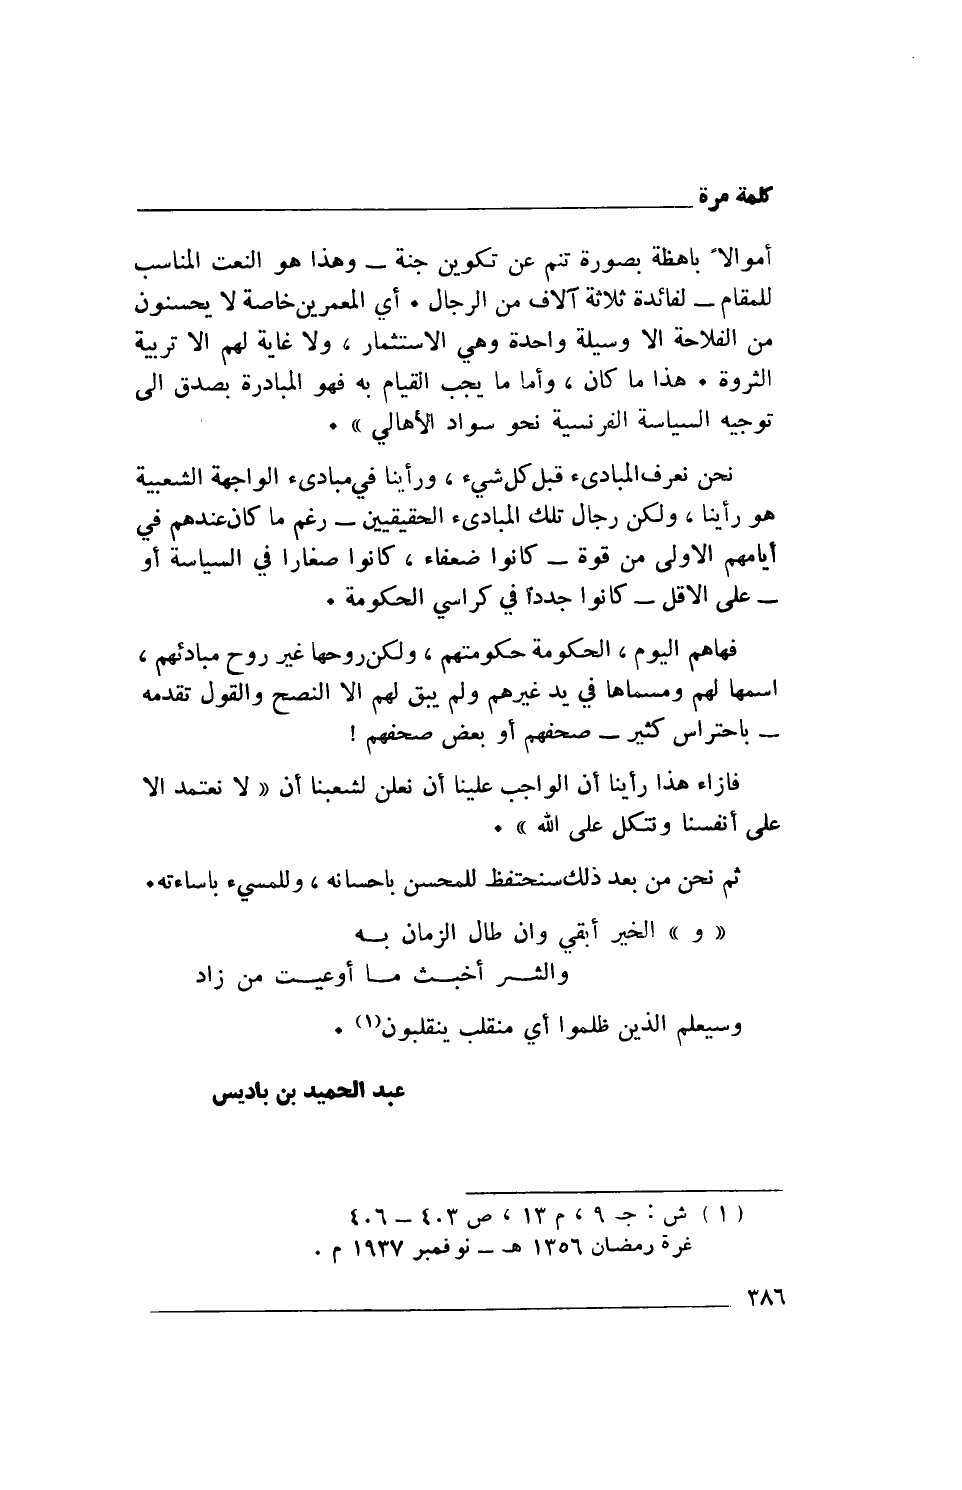 كلمة مرة
أموالاً باهظة بصورة تنم عن تكوين جنة ــ وهذا هو النعت المناسب
للمقام ــ لفائدة ثلاثة آلاف من الرجال . أي المعمرين خاصة لا يحسنون
من الفلاحة الا وسيلة واحدة وهي الاستثمار ، ولا غاية لهم الا تربية
الثروة . هذا ما كان ، وأما ما يجب القيام به فهو المبادرة بصدق الى
توجيه السياسة الفرنسية نحو سواد الأهالي » .
نحن نعرف المبادىء قبل كل شيء ، ورأينا في مبادىء الواجهة الشعبية
هو رأينا ، ولكن رجال تلك المبادىء الحقيقيين ــ رغم ما كان عندهم في
أيامهم الاولى من قوة ــ كانوا ضعفاء ، كانوا صغارا في السياسة أو
ــ على الاقل ــ كانوا جدداً في كراسي الحكومة .
فهاهم اليوم ، الحكومة حكومتهم ، ولكن روحها غير روح مبادئهم ،
اسمها لهم ومسماها في يد غيرهم ولم يبق لهم الا النصح والقول تقدمه
ــ باحتراس كثير ــ صحفهم أو بعض صحفهم !
فازاء هذا رأينا أن الواجب علينا أن نعلن لشعبنا أن « لا نعتمد الا
على أنفسنا ونتكل على الله » .
ثم نحن من بعد ذلك سنحتفظ للمحسن باحسانه ، وللمسيء باساءته .
« و » الخير أبقي وان طال الزمان بـــه
والشـــر أخبـــث مـــا أوعيـــت من زاد
وسيعلم الذين ظلموا أي منقلب ينقلبون(١) .
عبد الحميد بن باديس
( ١ ) ش : جـ ٩ ، م ١٣ ، ص ٤٠٣ ــ ٤٠٦
غرة رمضان ١٣٥٦ هـ ــ نوفمبر ١٩٣٧ م .
٣٨٦